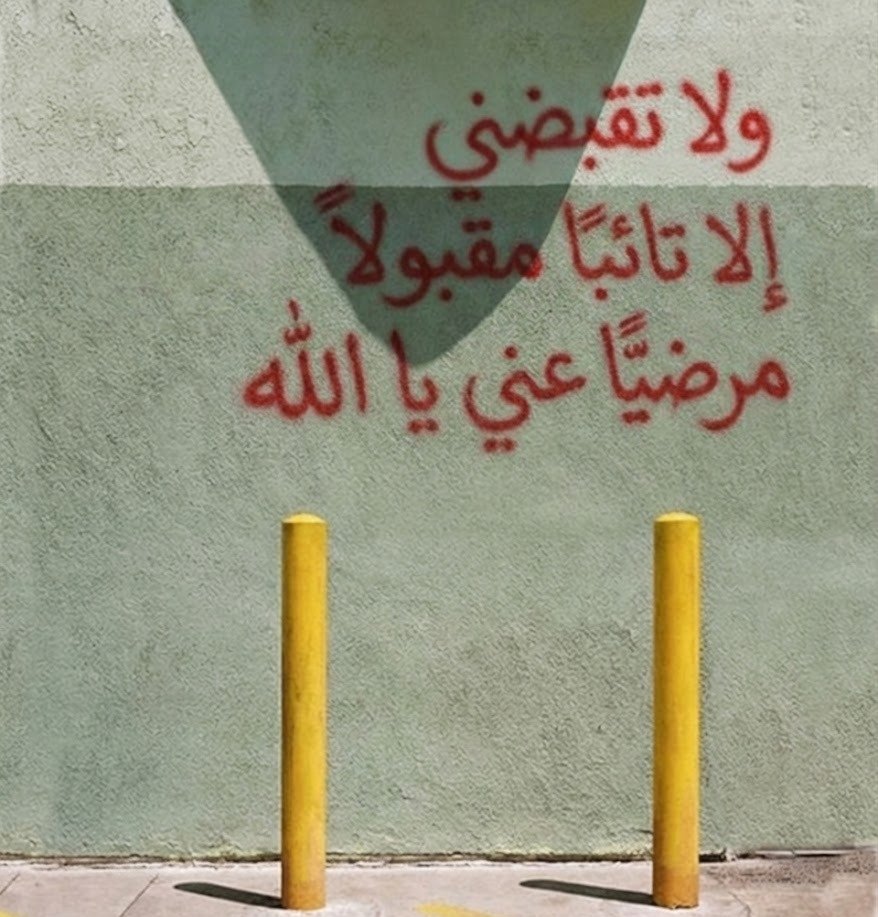 ولا تقبضني
إلا تائبًا مقبولاً
مرضيًّا عني يا الله